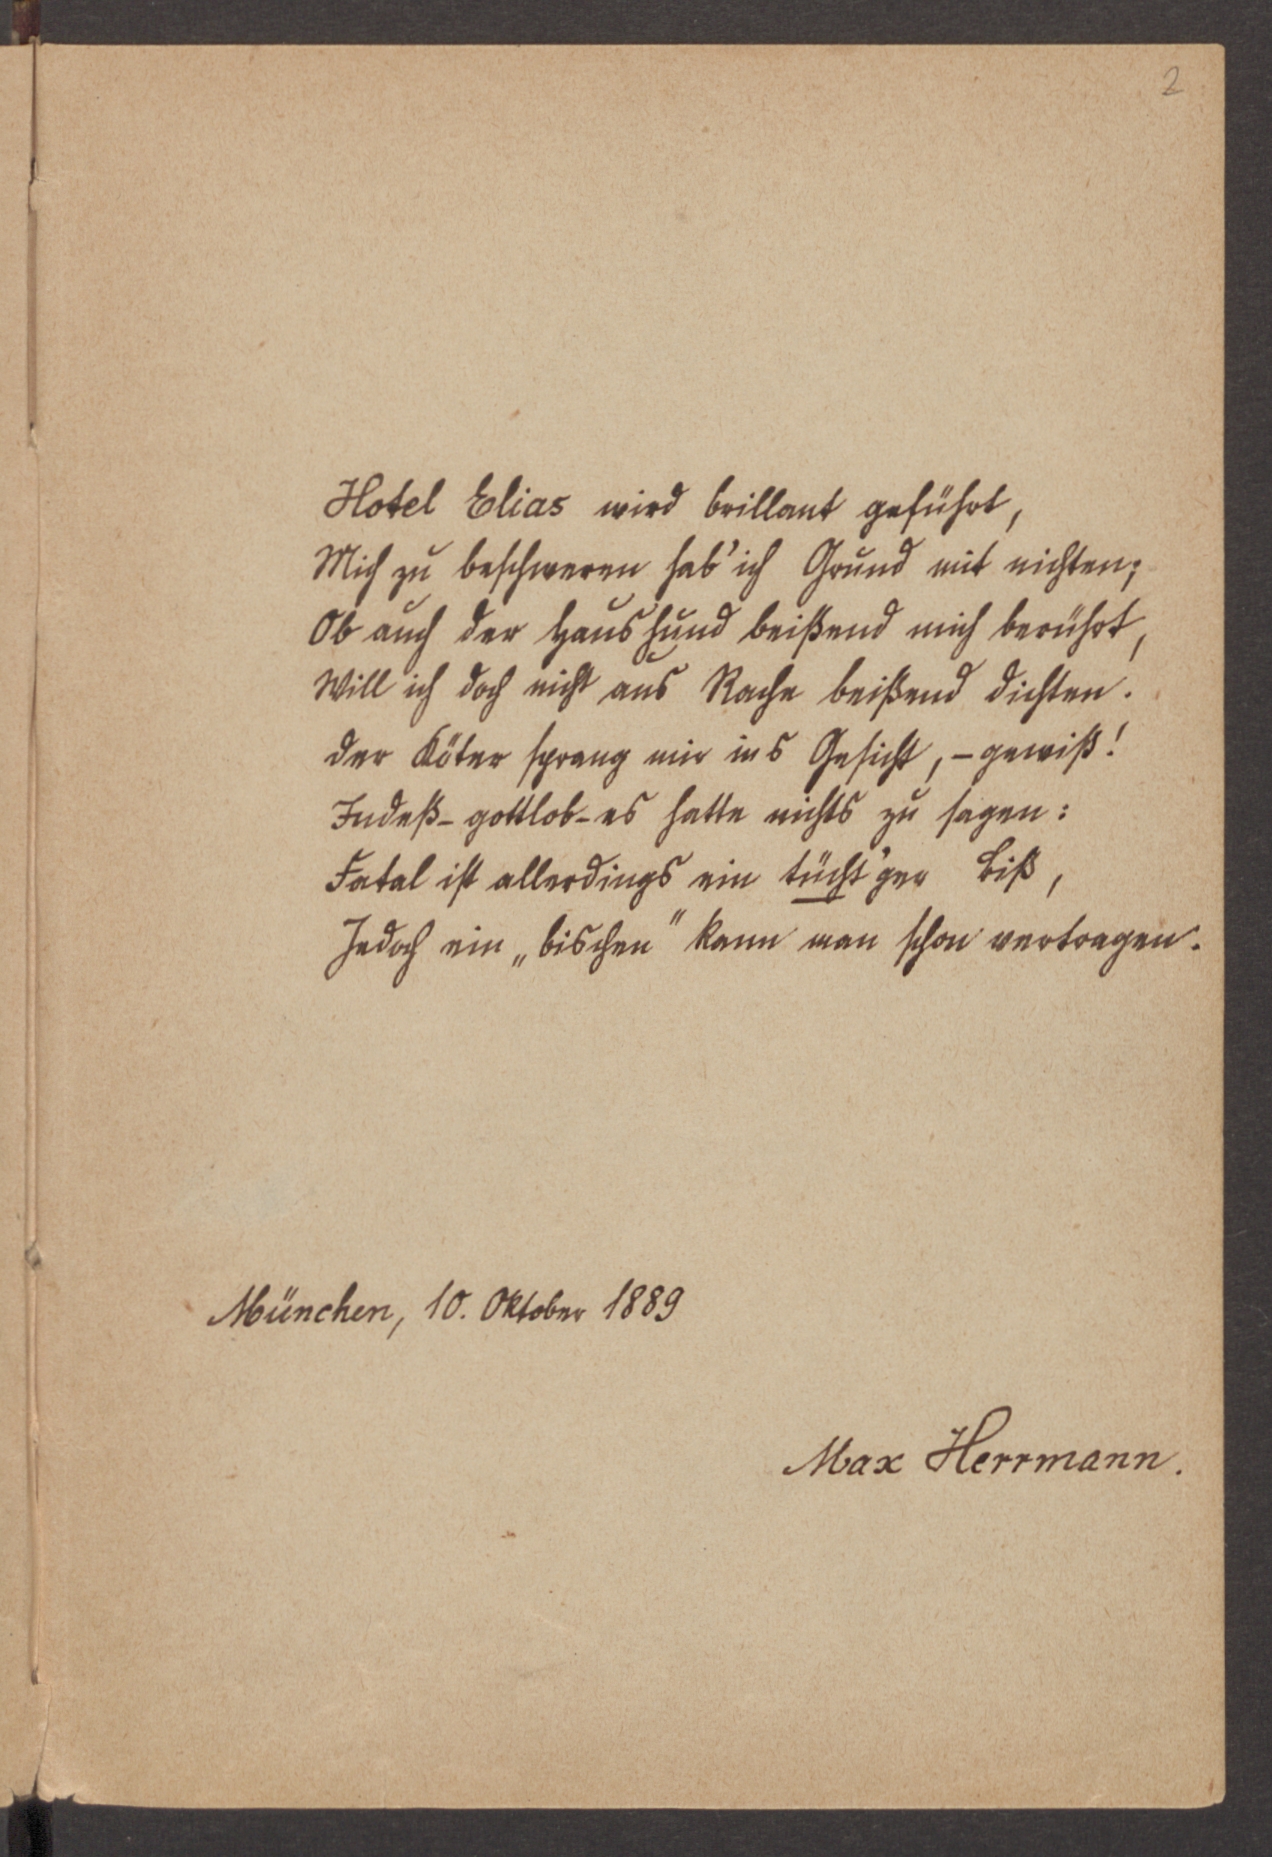 2
Hotel Elias wird brillant geführt,
Mich zu beschweren hab' ich Grund mit nichten;
Ob auch der Haushund beißend mich berührt,
Will ich doch nicht aus Rache beißend dichten.
Der Köter sprang mir ins Gesicht, – gewiß!
Indeß – gottlob – es hatte nichts zu sagen:
Fatal ist allerdings ein tücht'ger Biß,
Jedoch ein „bischen" kann man schon vertragen.
München, 10. Oktober 1889
Max Herrmann.